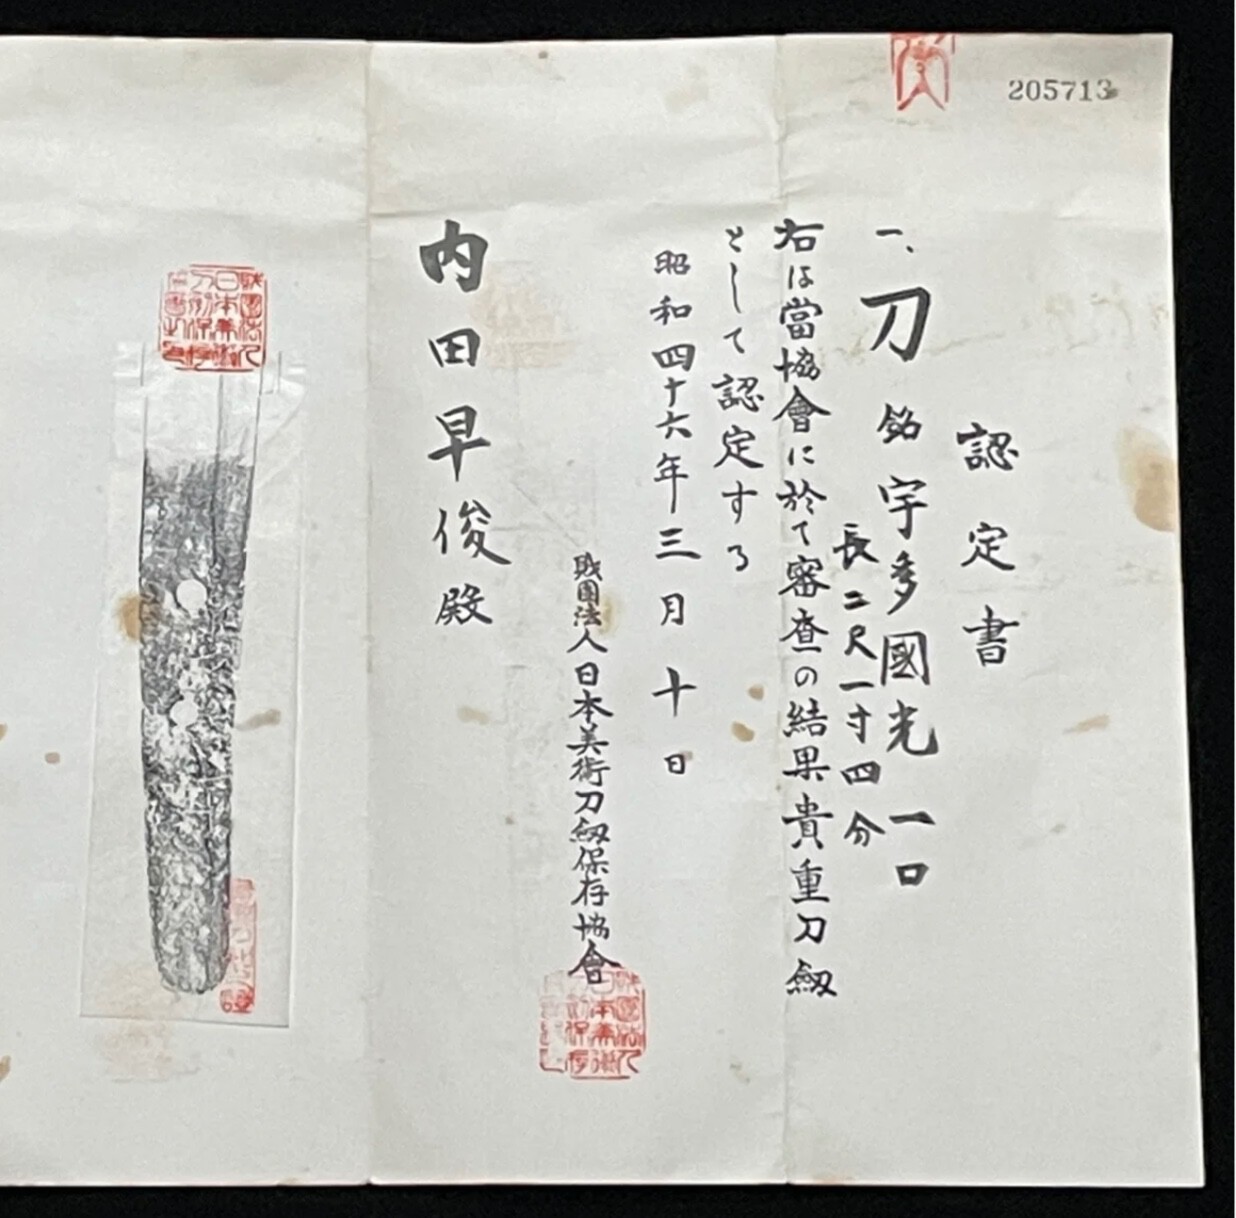 205713
認定書
一、刀 銘 宇多國光 一口
長二尺一寸四分
右は當協會に於て審査の結果貴重刀劔
として認定する
昭和四十六年三月十日
財團法人日本美術刀劔保存協會
内田早俊殿